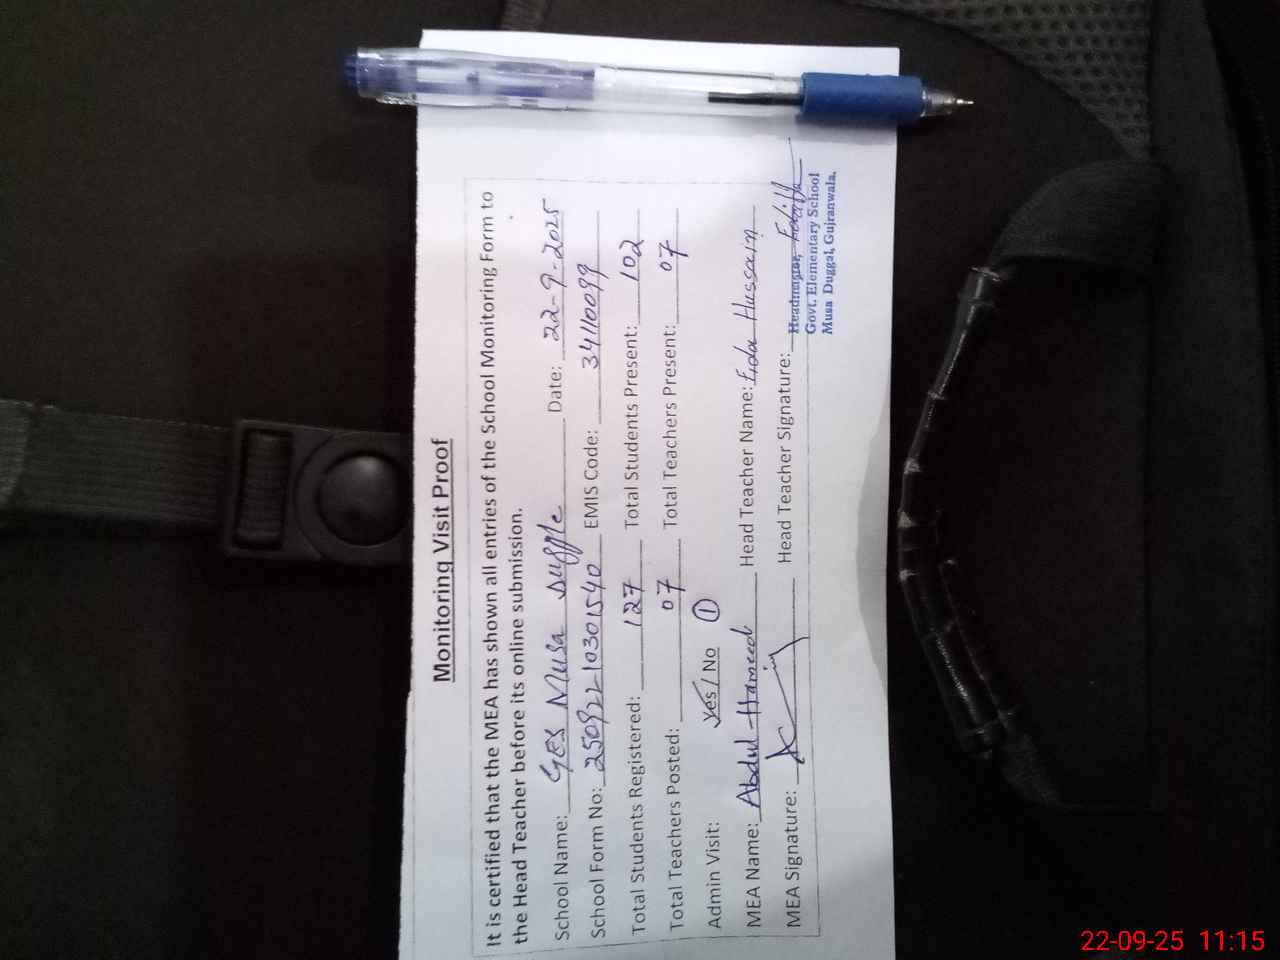 Monitoring Visit Proof
It is certified that the MEA has shown all entries of the School Monitoring Form to
the Head Teacher before its online submission.
School Name: GES Musa Duggle Date: 22-9-2025
School Form No: 25092210301540 EMIS Code: 34110099
Total Students Registered: 127 Total Students Present: 102
Total Teachers Posted: 07 Total Teachers Present: 07
Admin Visit: Yes / No 1
MEA Name: Abdul Hameed Head Teacher Name: Fida Hussain
MEA Signature: Head Teacher Signature:
Headmaster,
Govt. Elementary School
Musa Duggal, Gujranwala.
22-09-25 11:15